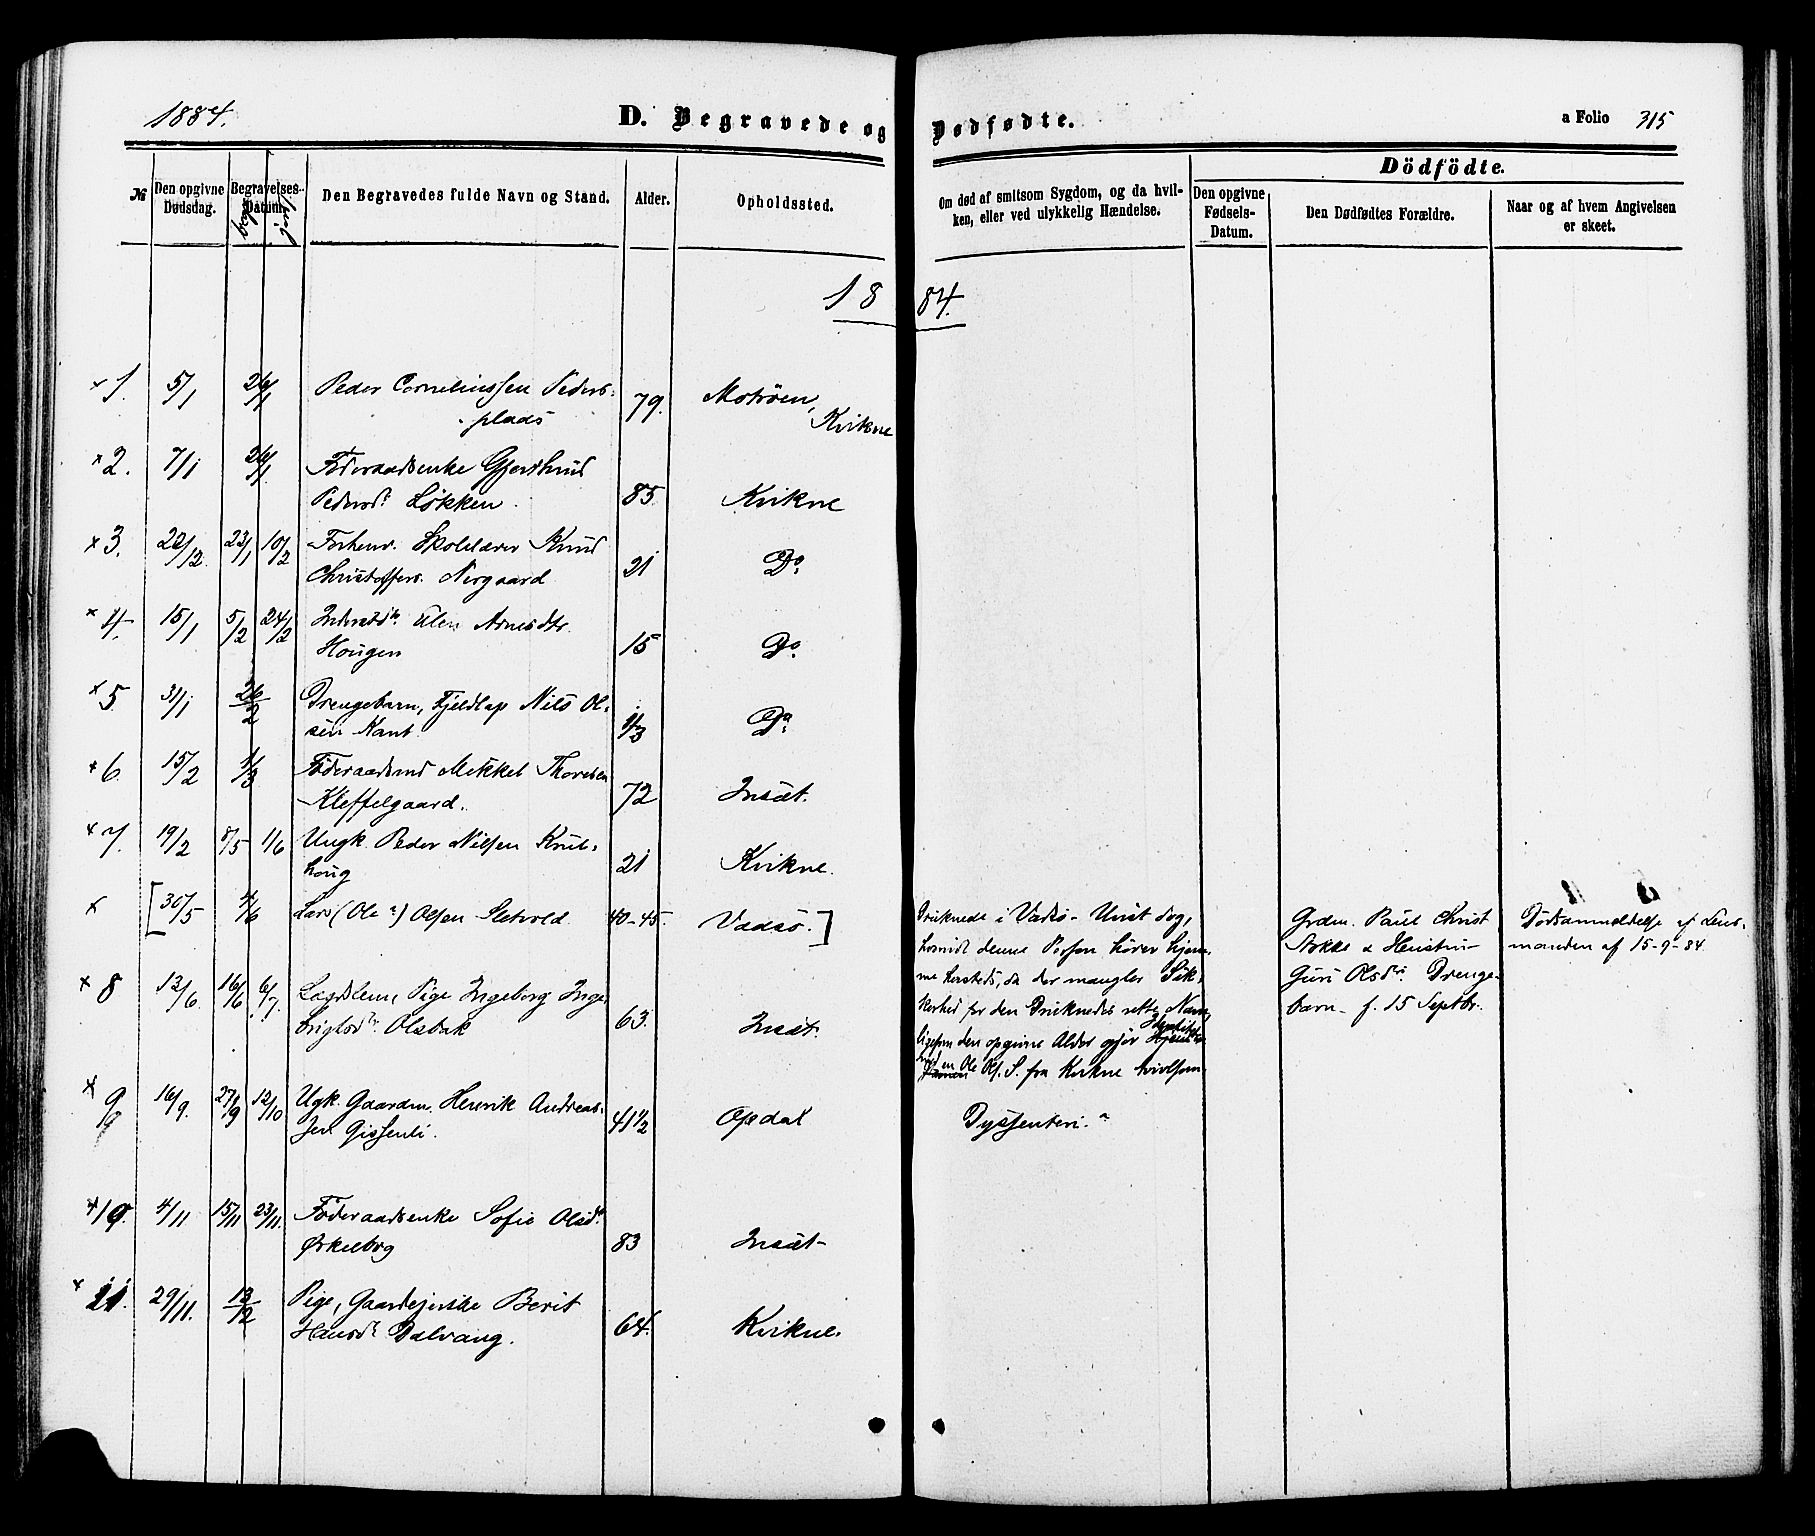 1884.
D. Begravede og Dødfødte.
a Folio 315
№
Den opgivne Dødsdag.
Begravelses-Datum.
Den Begravedes fulde Navn og Stand.
Alder.
Opholdssted.
Om død af smitsom Sygdom, og da hvil-
ken, eller ved ulykkelig Hændelse.
Dödfödte.
Den opgivne Fødsels-Datum.
Den Dødfødtes Forældre.
Naar og af hvem Angivelsen er skeet.
18 84.
× 1. 5/1 26/1 Peder Corneliussen Peders- 79. Motrøen,
plads Kvikne
× 2. 7/1 26/1 Föderaadsenke Gjerthrud
Pedersdr Løkken. 85. Kvikne
× 3. 22/12. 23/1 10/2 Forhenv. Skolelærer Knud
Christoffers. Nergaard 21 Do
× 4. 15/1 5/2 24/2 Inderstdtr Elen Arnesdtr.
Hougen 15 Do
× 5. 31/1 26/2 Drengebarn, Fjeldlap Nils Ol-
sen Kant. 1/3 Do
× 6. 15/2 1/3 Föderaadsmd Mekkel Thoresen
Kleffelgaard. 72 Insæt.
× 7. 19/2 8/5 1/6 Ungk. Peder Nilsen Krub-
houg 21 Kvikne.
× [30/5 4/6 Lars (Ole?) Olsen Sletvold 40-45. Vadsø.]
Druknede i Vadsø - Uvist dog,
hvorvidt denne Person hører hjem-
me herfra, da der mangler Sik-
kerhed for den Druknedes rette Navn,
ligesom den opgivne Alder gjør Identitet
med en Ole Ols. S. fra Kvikne tvivlsom.
Grdm. Paul Christ
Stokke & Hustru
Guri Olsdtr. Drenge-
barn f. 15 Septbr.
Dødsanmeldelse af Lens-
manden af 15-9-84.
× 8 12/6. 16/6 6/7. Lægdslem, Pige Ingeborg Inge-
brigtsdtr Olsbak 63. Insæt.
× 9 16/9. 27/9 12/10 Ugk. Gaardm. Henrik Andreas-
sen Gissenli. 41 1/2 Opdal Dyssenteri.
× 10. 4/11 15/11 23/11. Föderaadsenke Sofie Olsdtr
Ørkelbog 83 Insæt
× 11. 29/11. 13/12 Pige, Gaardejerske Berit
Hansdtr Dalvang. 64. Kvikne.